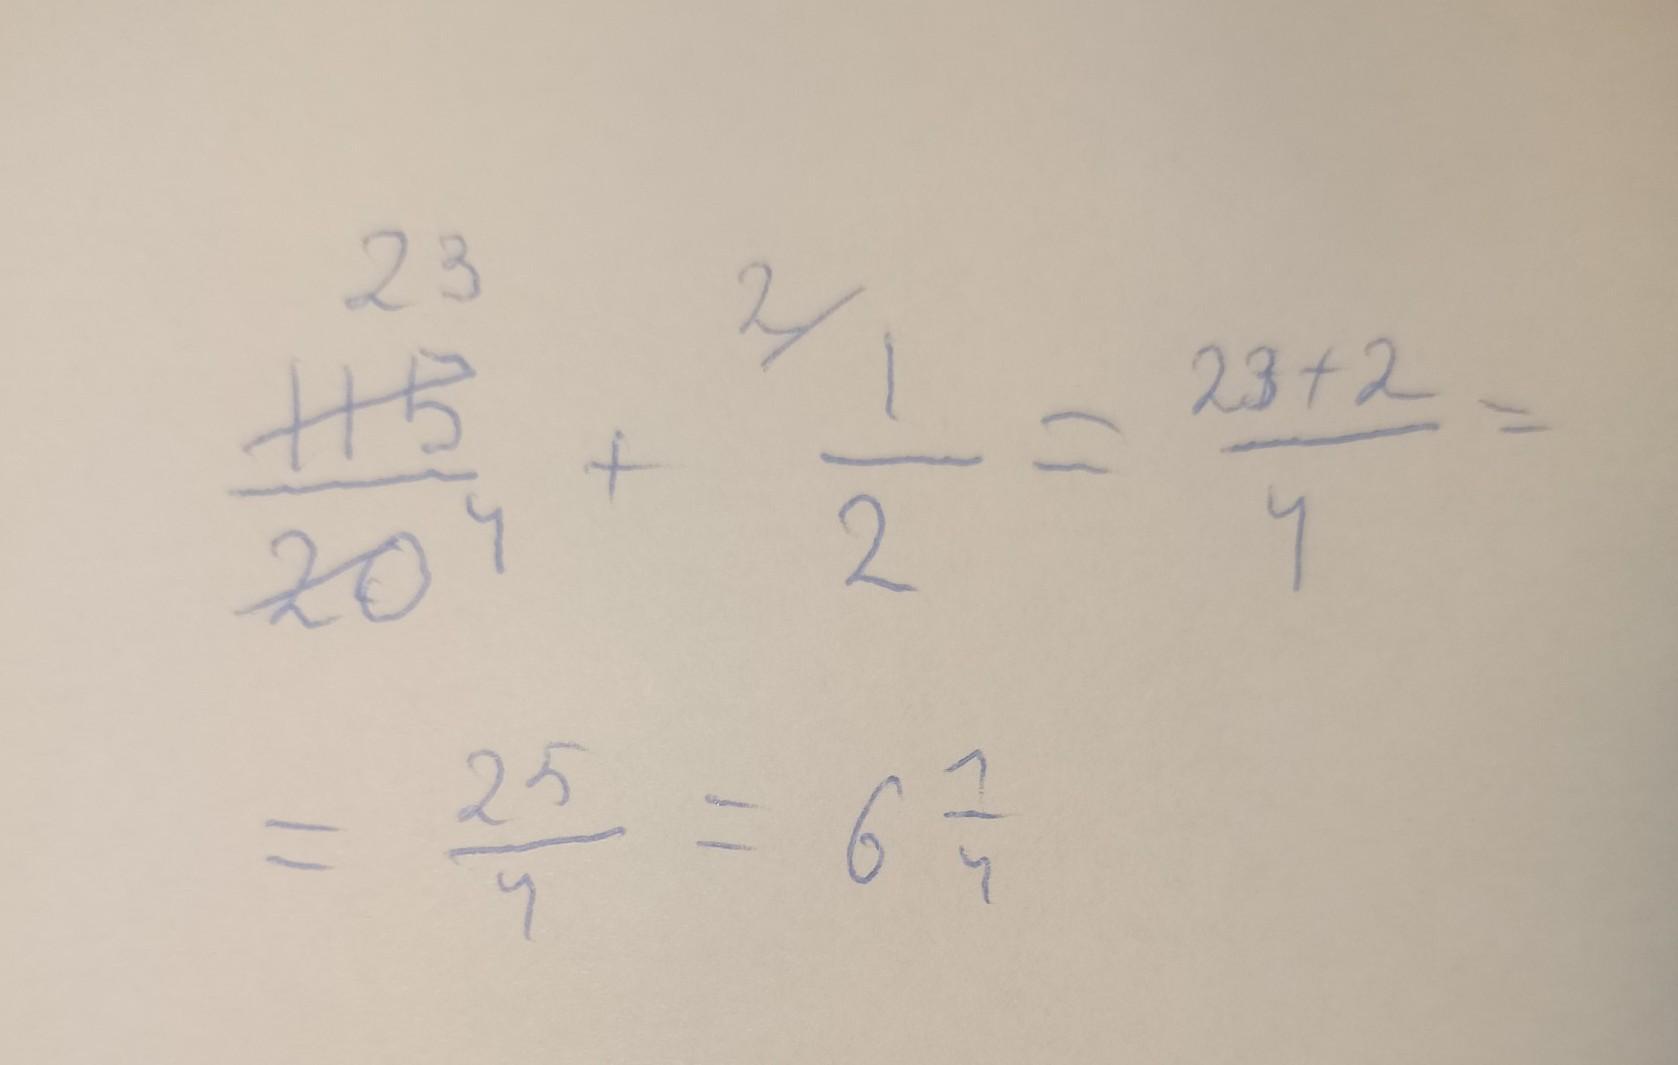 23 2/
115/20 4 + 1/2 = 23+2/4 =
= 25/4 = 6 1/4